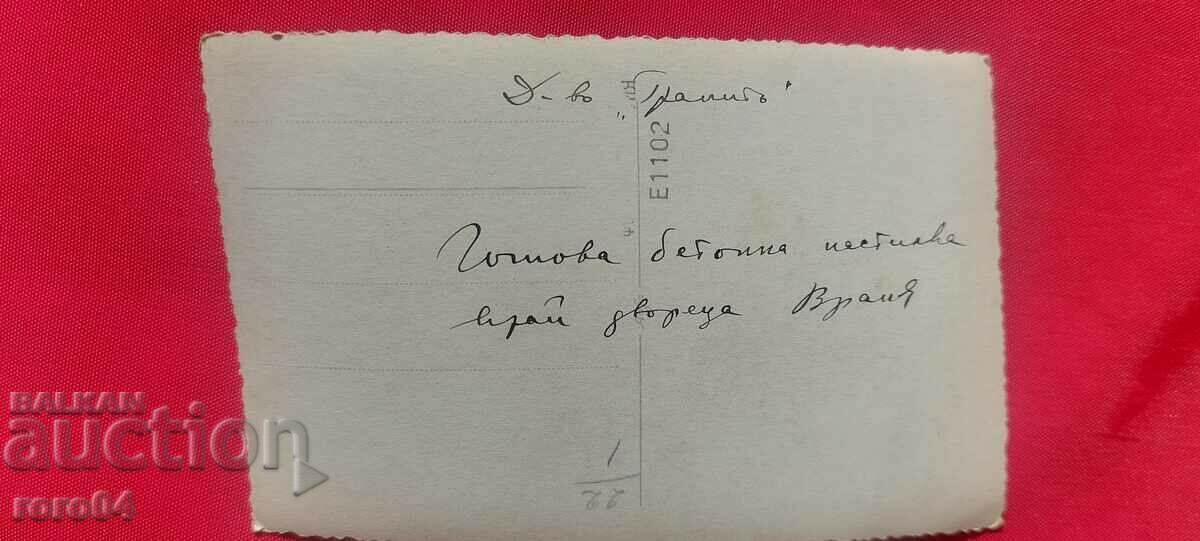 Д-во „Гранитъ"
E1102
Готова бетонна настилка
край двореца Враня
1
22
BALKAN
auction
roro04